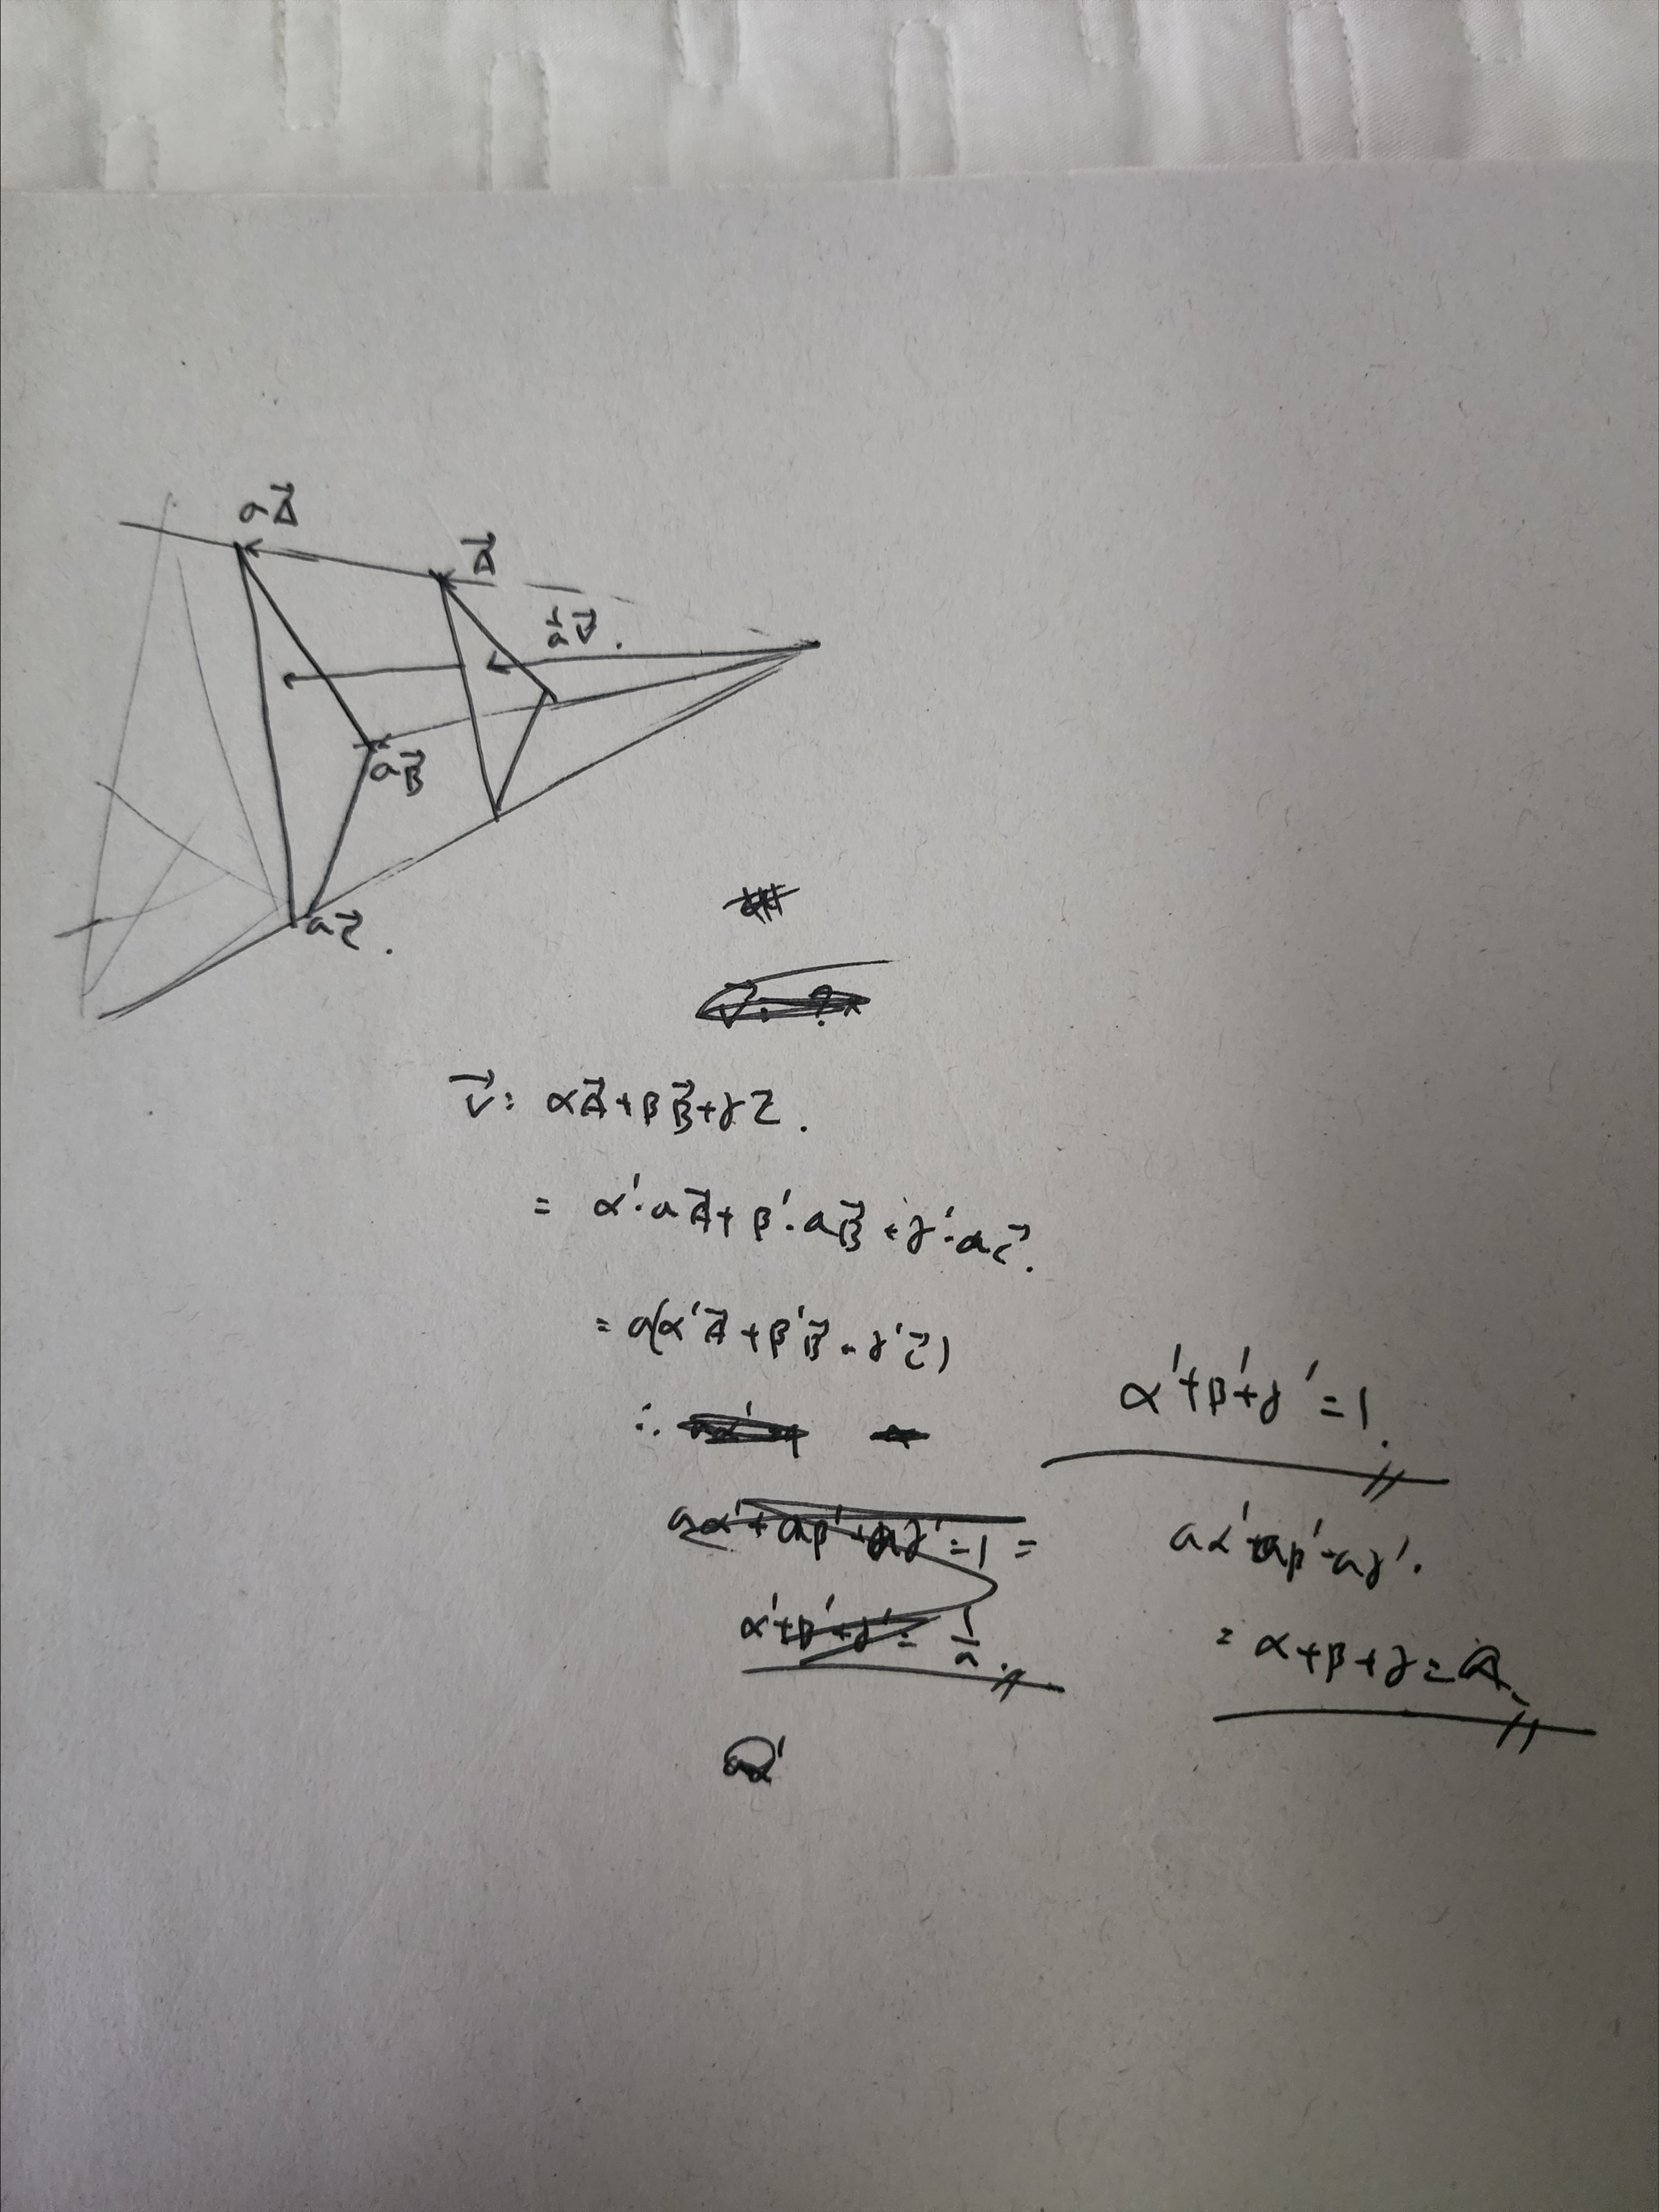 aA⃗
A⃗
1/a V⃗.
aB⃗
aC⃗.
V⃗ = αA⃗+βB⃗+γC⃗.
= α'·aA⃗+β'·aB⃗+γ'·aC⃗.
= a(α'A⃗+β'B⃗+γ'C⃗)
∴
α'+β'+γ'=1.
aα'+aβ'+aγ'=1 =
aα'+aβ'+aγ'.
α'+β'+γ'= 1/a.
= α+β+γ=a.